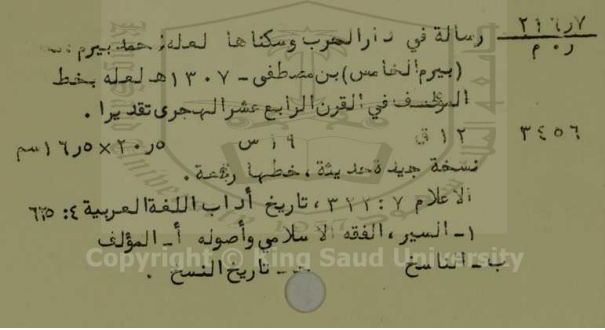 ٢١٦٫٧ رسالة في دار الحرب وسكناها لعله: محمد بيرم
ر ٠ م
(بيرم الخامس) بن مصطفى - ١٣٠٧ هـ لعله بخط
المؤلف في القرن الرابع عشر الهجرى تقديرا .
٣٤٥٦ ١٢ ق ١٩ س ٢٠٫٥×١٦٫٥ سم
نسخة جيدة حديثة ، خطها رقعة .
الاعلام ٧: ٣٢٢ ، تاريخ أداب اللغة العربية ٤:
١ـ السير ، الفقه الاسلامي وأصوله أـ المؤلف
ب ـ الناسخ جـ ـ تاريخ النسخ .
Copyright © King Saud University